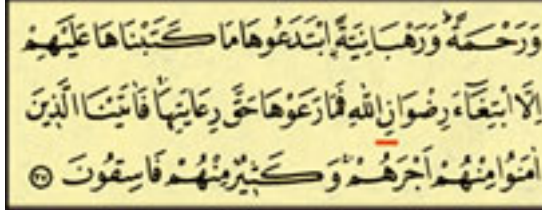 وَرَحْمَةًۜ وَرَهْبَانِيَّةًۨ ابْتَدَعُوهَا مَا كَتَبْنَاهَا عَلَيْهِمْ
اِلَّا ابْتِغَٓاءَ رِضْوَانِ اللّٰهِ فَمَا رَعَوْهَا حَقَّ رِعَايَتِهَاۚ فَاٰتَيْنَا الَّذِينَ
اٰمَنُوا مِنْهُمْ اَجْرَهُمْۚ وَكَثِيرٌ مِنْهُمْ فَاسِقُونَ ﴿٢٧﴾